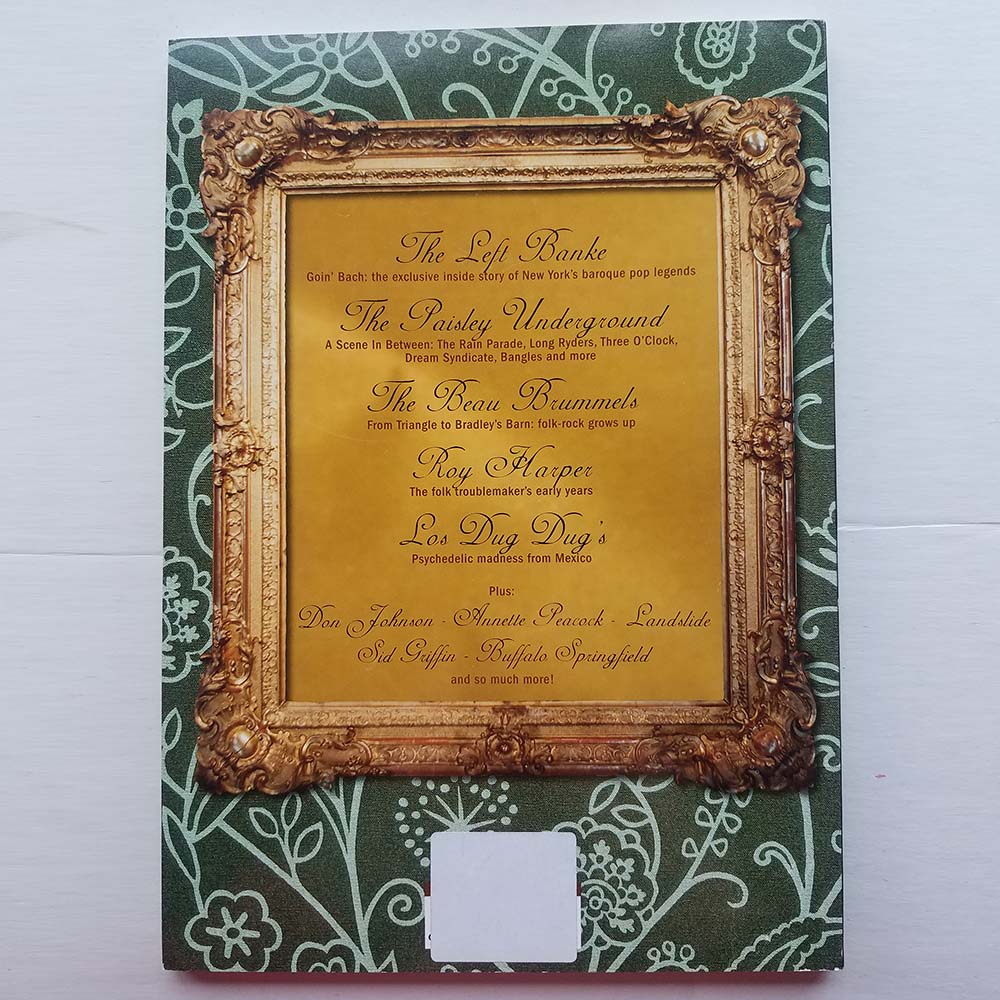 The Left Banke
Goin' Bach: the exclusive inside story of New York's baroque pop legends
The Paisley Underground
A Scene In Between: The Rain Parade, Long Ryders, Three O'Clock,
Dream Syndicate, Bangles and more
The Beau Brummels
From Triangle to Bradley's Barn: folk-rock grows up
Roy Harper
The folk troublemaker's early years
Los Dug Dug's
Psychedelic madness from Mexico
Plus:
Don Johnson - Annette Peacock - Landslide
Sid Griffin - Buffalo Springfield
and so much more!